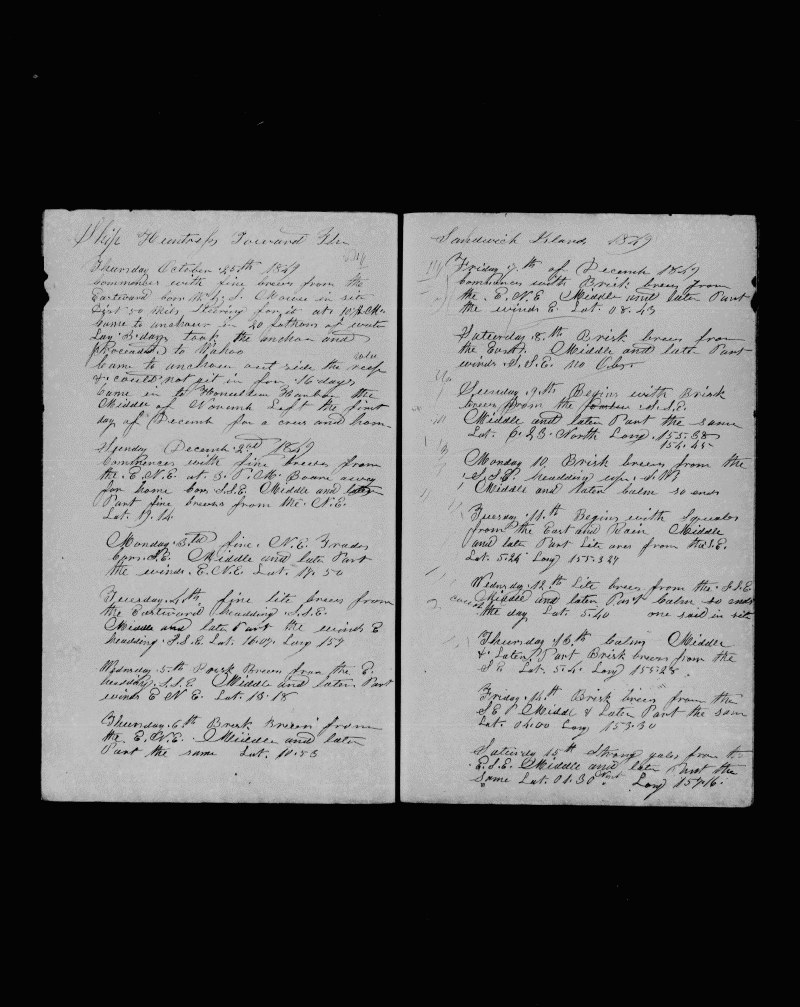 Ship Huntress Toward The
Thursday October 25th 1849
commences with fine breeses from the
Eastward bore W by S. Mowee in site
Dist 50 Mils Stering for it at 10 P.M.
came to anchour in 20 fathoms of water
Lay 3 days took the anchor and
proceaded to Wahoo
Cam to anchoer out side the reef
& could not git in for 16 days
Came in to Honuston Harbor the
Middle of Novemb Left the first
day of Decemb for a crus and hom
Decemb 2nd 1849
Commences with fine breeses from
the E.N.E at 3 P.M. Boare away
for home bor S.S.E. Middle and later
Part fine breeses from the N.E.
Lat. 19.14
Monday 3rd fine N.E. Trades
bore S.E. Middle and late Part
the winds E.N.E. Lat. 17.50
Tuesday 4th fine lite brees from
the Eastward headding S.S.E.
Middle and late Part the winds E
headding S.S.E. Lat. 16.07 Long 157
Wednsday 5th Brisk Brees from the E.
headdg S.S.E. Middle and later Part
winds E N E. Lat. 13.18
Thursday 6th Brisk breeses from
the E.N.E. Middle and later
Part the same Lat. 10.53
Sandwich Islands 1849
Friday 7th of Decemb 1849
Commences with Brisk brees from
the E.N.E Middle and later Part
the winds E Lat. 08.43
Saturday 8th Brisk brees from
the East. Middle and late Part
winds S.S.E. no Obs.
9th Begins with Brisk
brees from the S.S.E.
Middle and later Part the same
Lat. North Long. 155.38
154.45
Monday 10 Brisk brees from the
S.S.E. headding
Middle and later Calm so ends
Tuesday 11th Begins with Squales
from the East and Rain Middle
and late Part Lite ares from the S.E.
Lat. 5.24 Long 155.327
Wednsday 12th Lite brees from the S.S.E.
Middle and later Part Calm so ends
the day Lat. 5.40 one sail in site
Thursday 13th Calm Middle
& Later Part Brisk brees from the
S E Lat. 5.4 Long 153.28
Friday 14th Brisk brees from the
S.E. Middle & Later Part the sam
Lat. 04.00 Long 153.30
Saturday 15th Strong gales from th
E.S.E. Middle and late Part the
Same Lat. 01.30 Nort Long 154.16